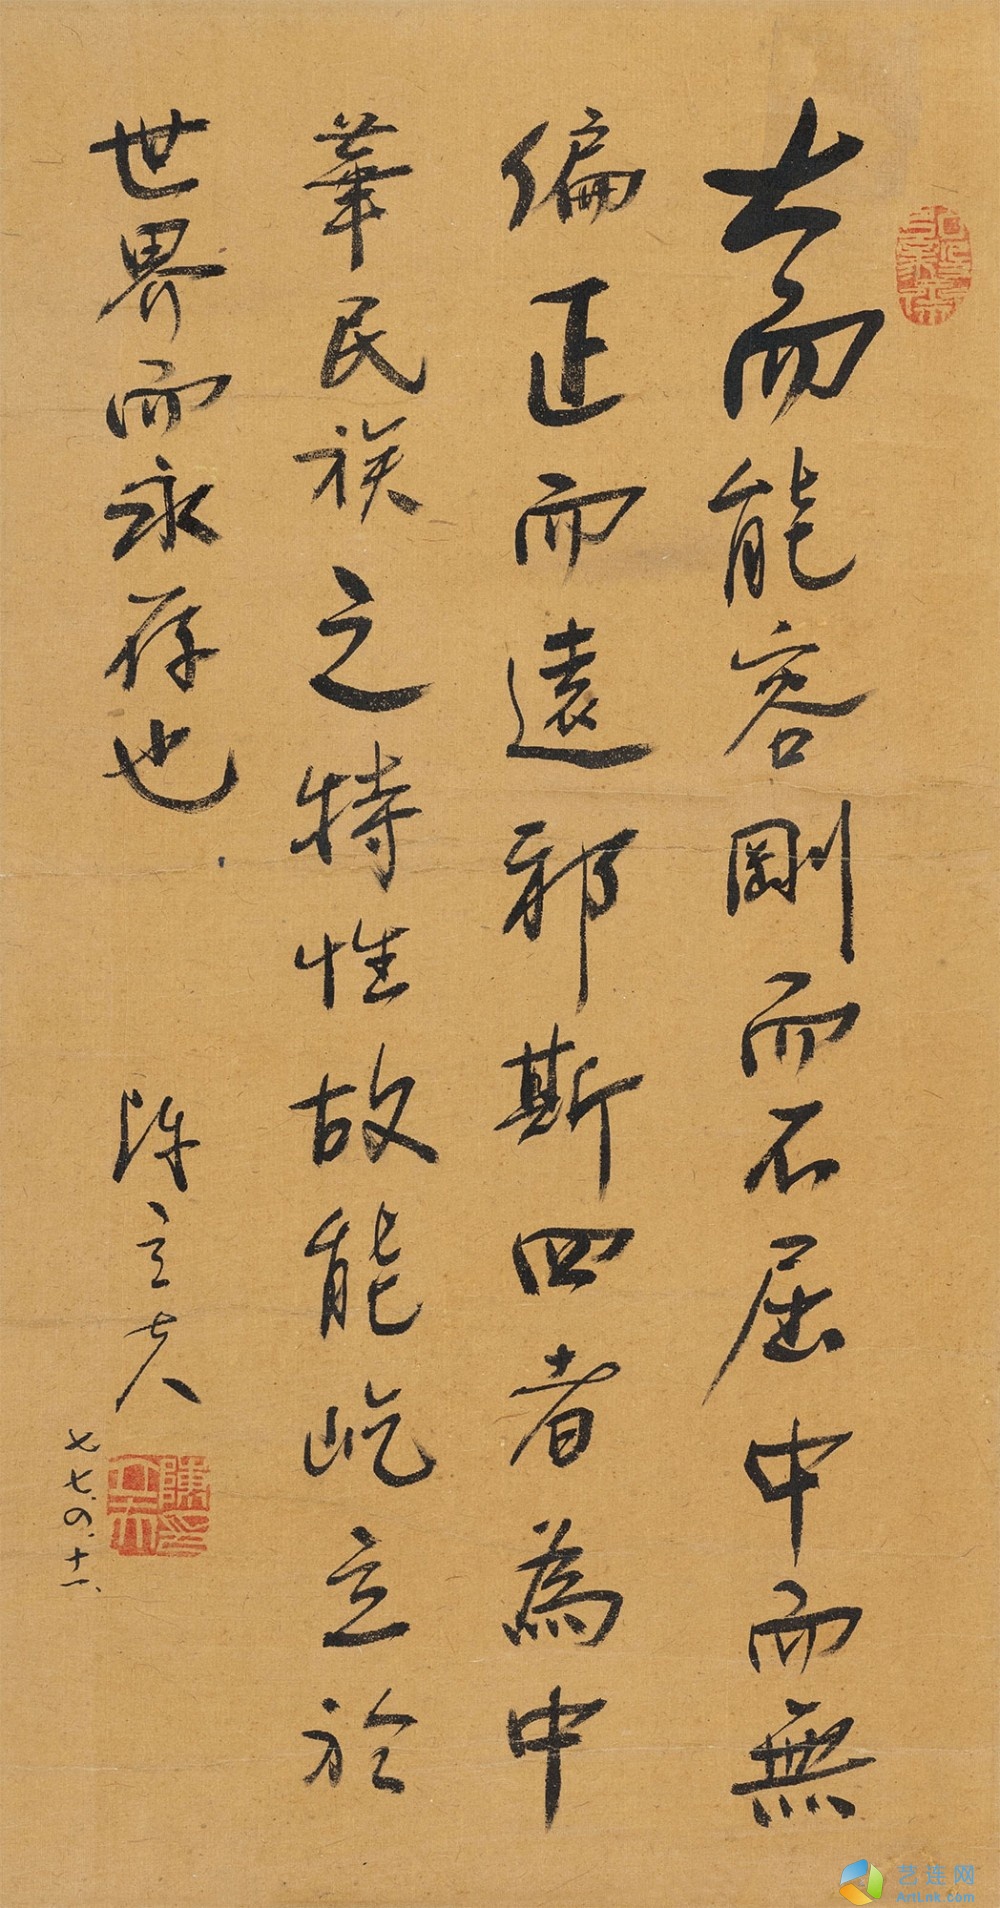 大而能容剛而不屈中而無
偏正而遠邪斯四者為中
華民族之特性故能屹立於
世界而永存也
陳立夫
七七.四.十一.
陳立夫印
艺连网
ArtLnk.com